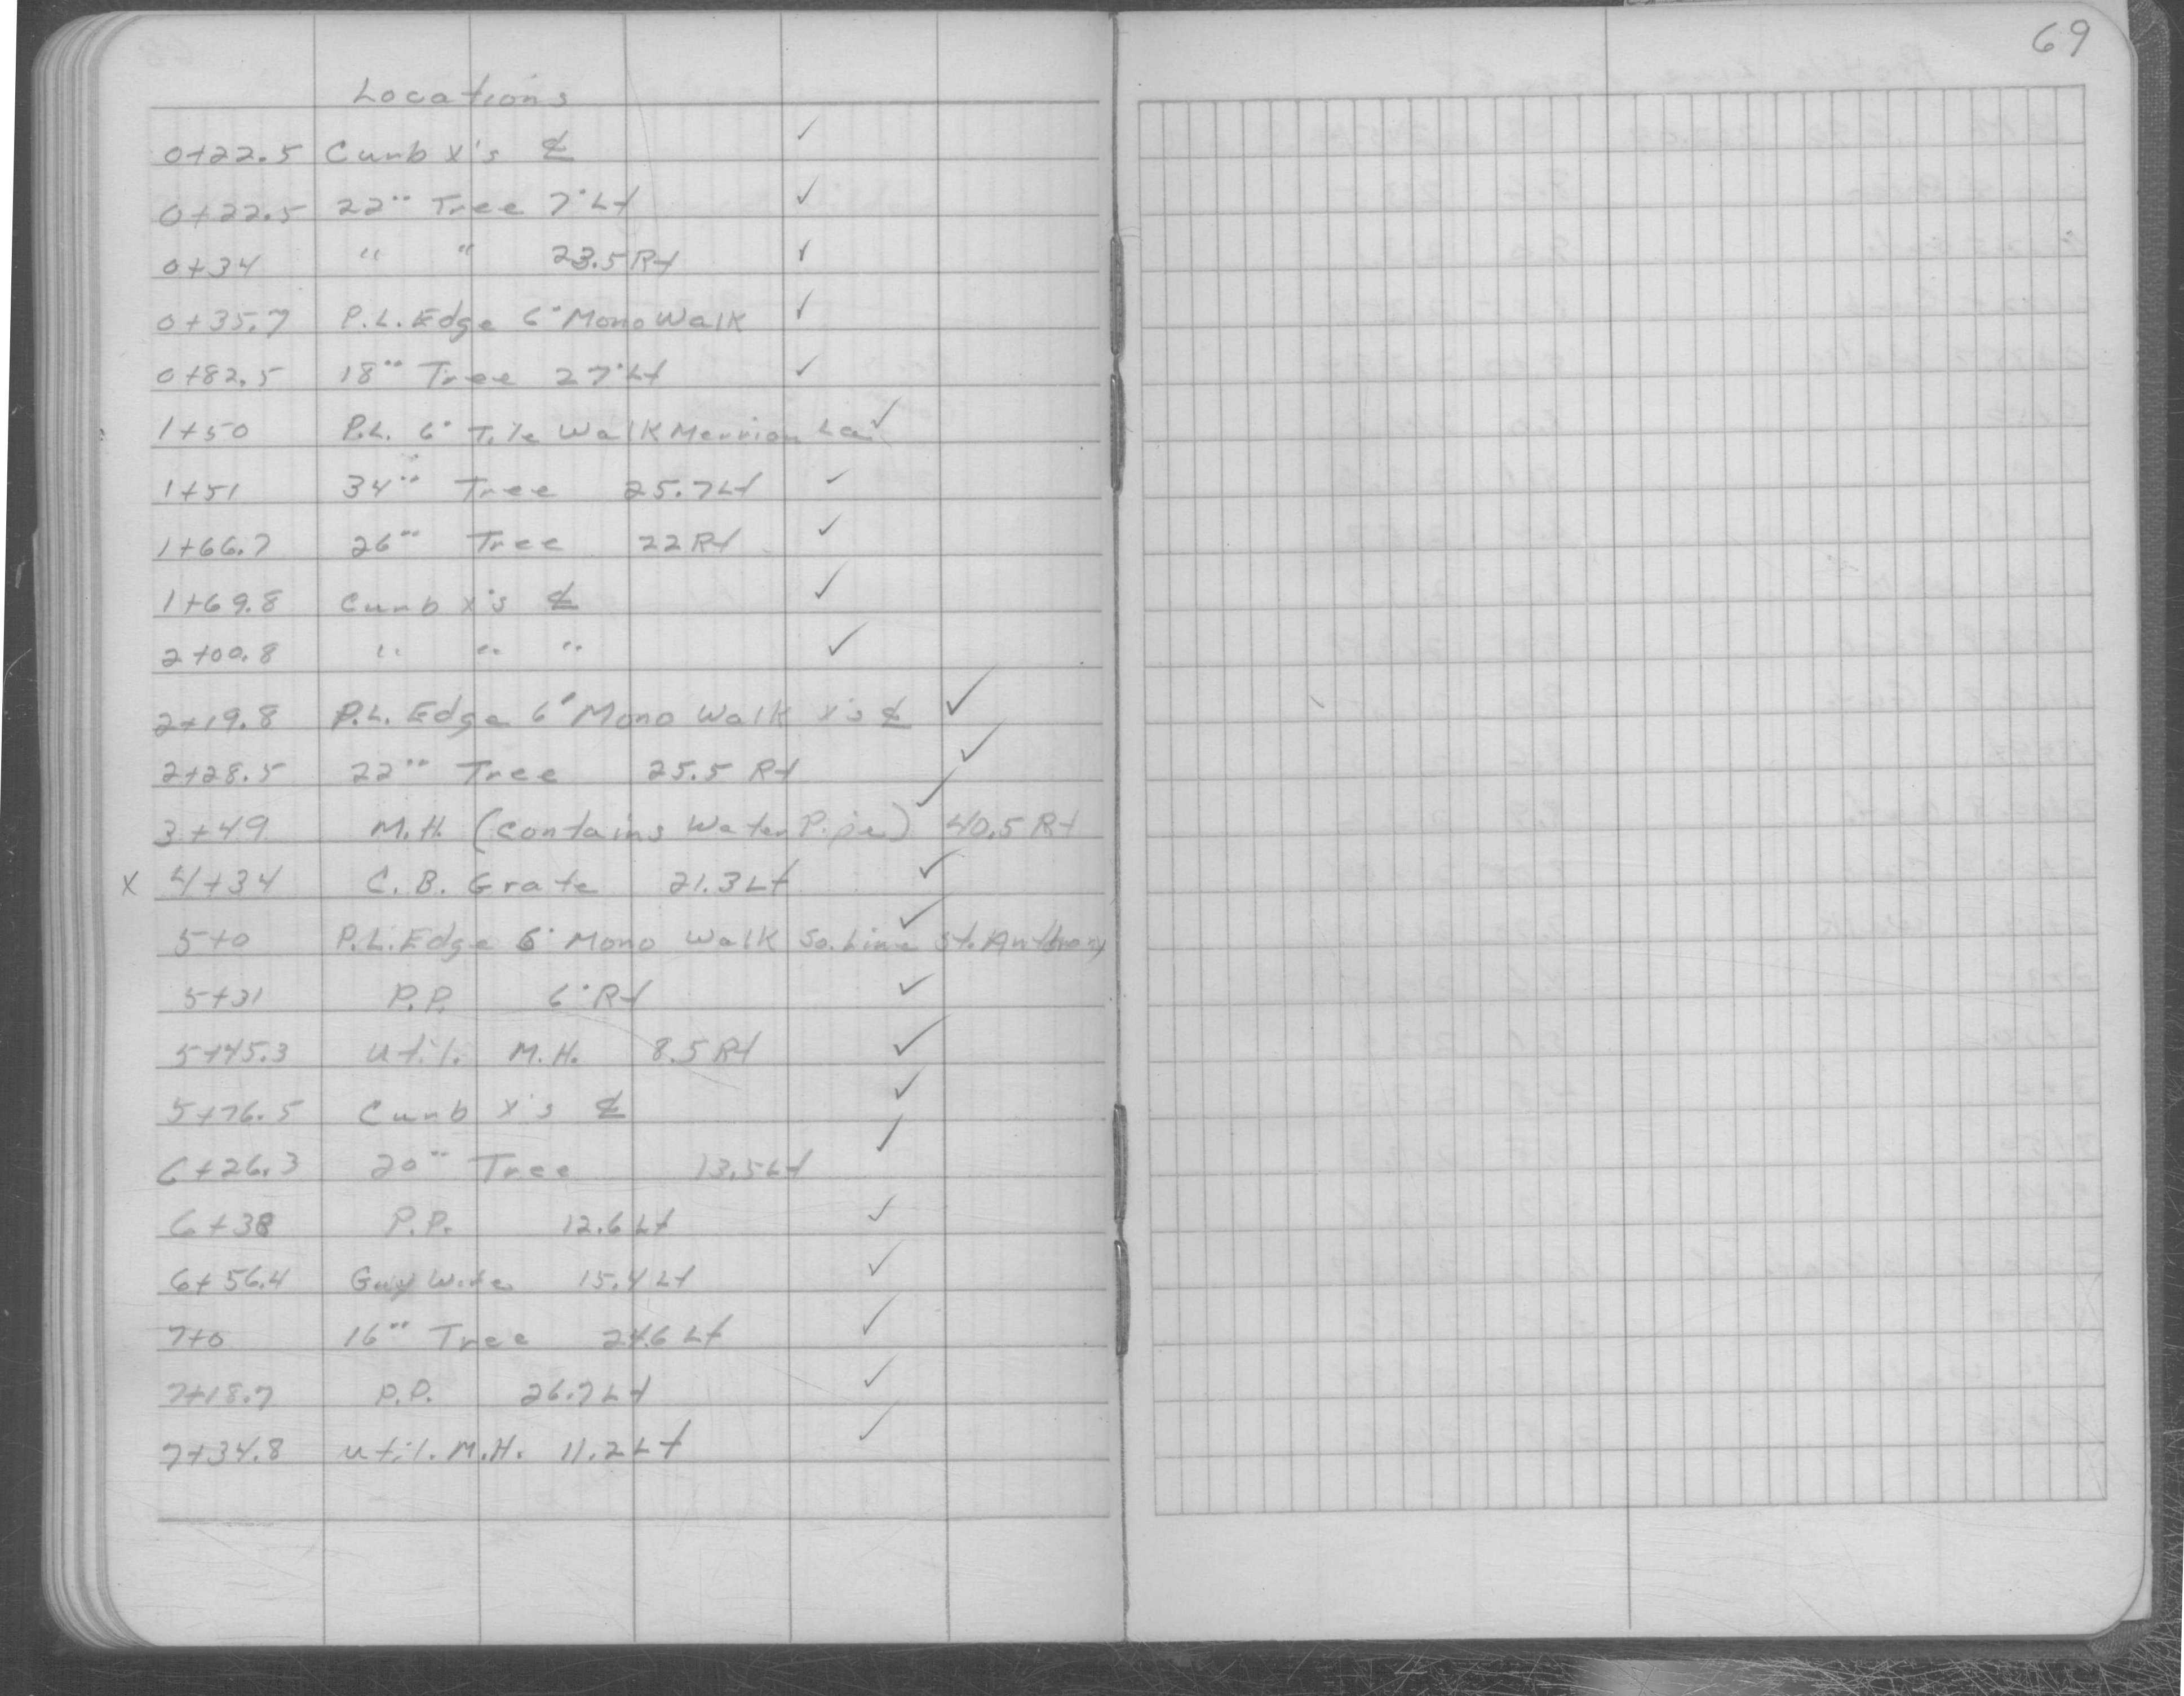 69
Locations
0+22.5 Curb x's ℄ ✓
0+22.5 22" Tree 7' Lt ✓
0+34 " " 23.5 Rt ✓
0+35.7 P.L. Edge 6' Mono Walk ✓
0+82.5 18" Tree 27' Lt ✓
1+50 P.L. 6' Tile Walk Merriam La. ✓
1+51 34" Tree 25.7 Lt ✓
1+66.7 26" Tree 22 Rt ✓
1+69.8 Curb x's ℄ ✓
2+00.8 " " " ✓
2+19.8 P.L. Edge 6' Mono Walk x's ℄ ✓
2+28.5 22" Tree 25.5 Rt ✓
3+49 M.H. (Contains Water Pipe) 40.5 Rt ✓
x 4+34 C.B. Grate 21.3 Lt ✓
5+0 P.L. Edge 6' Mono Walk So. Line St. Anthony ✓
5+31 P.P. 6' Rt ✓
5+45.3 Util. M.H. 8.5 Rt ✓
5+76.5 Curb x's ℄ ✓
6+26.3 20" Tree 13.5 Lt ✓
6+38 P.P. 12.6 Lt ✓
6+56.4 Guy Wire 15.4 Lt ✓
7+0 16" Tree 24.6 Lt ✓
7+18.7 P.P. 26.7 Lt ✓
7+34.8 Util. M.H. 11.2 Lt ✓